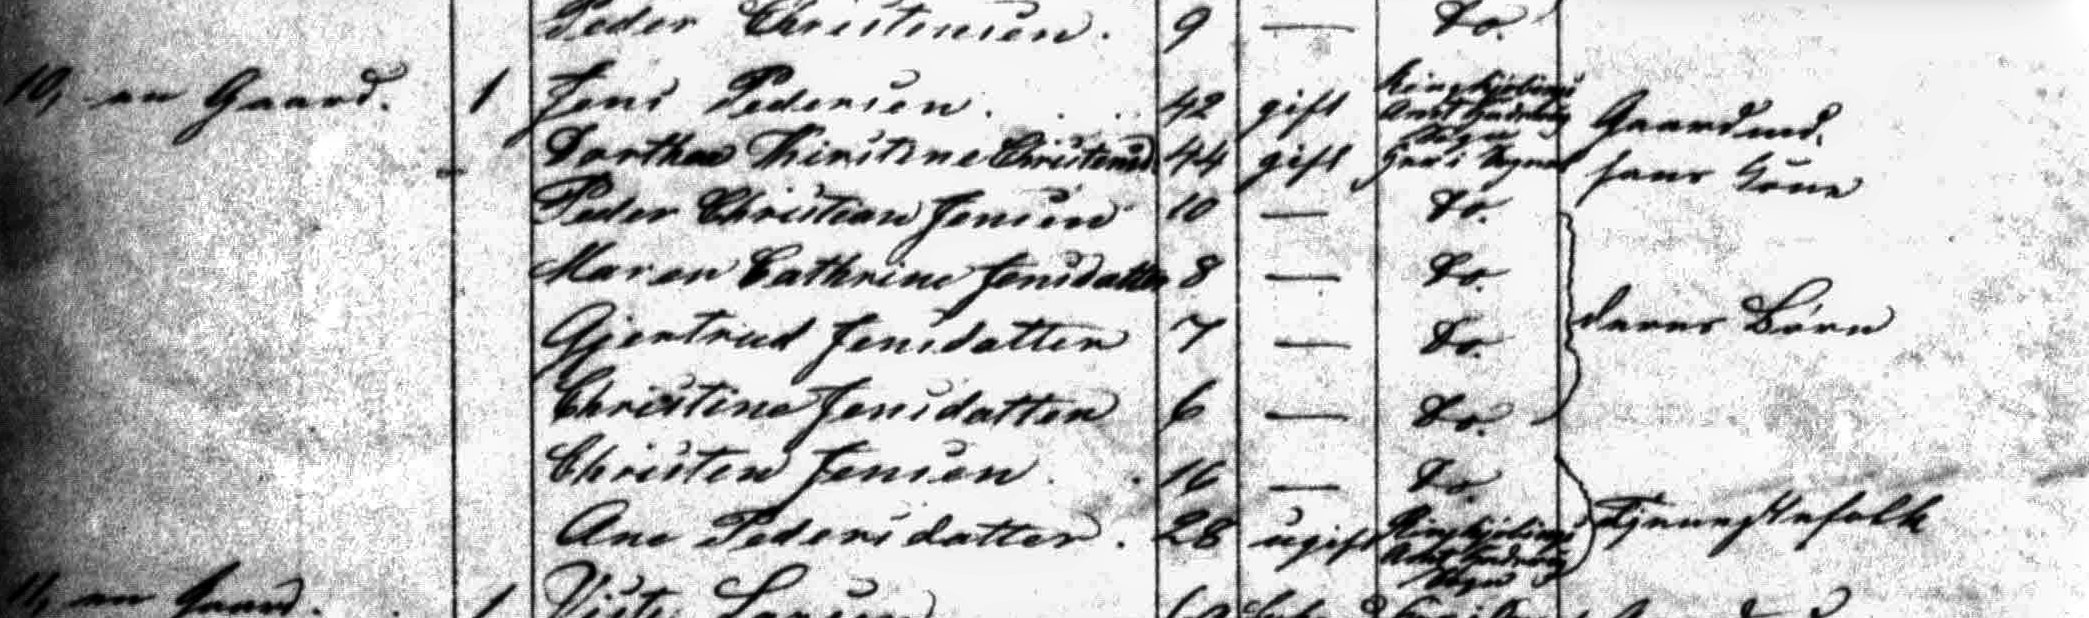 Peder Christensen. 9 — Do.
10, en Gaard. 1 Jens Pedersen. 42 gift Ringkjøbings Amt Sogn Gaardmd.
Dorthea Kirstine Christensd. 44 gift her i Sognet hans Kone
Peder Christian Jensen 10 — Do.
Maren Cathrine Jensdatter 8 — Do.
Gjertrud Jensdatter 7 — Do. deres Børn
Christine Jensdatter 6 — Do.
Christen Jensen. 16 — Do.
Ane Pedersdatter. 28 ugift Ringkjøbings Amt Sogn Tjenestefolk
11, en Gaard. 1